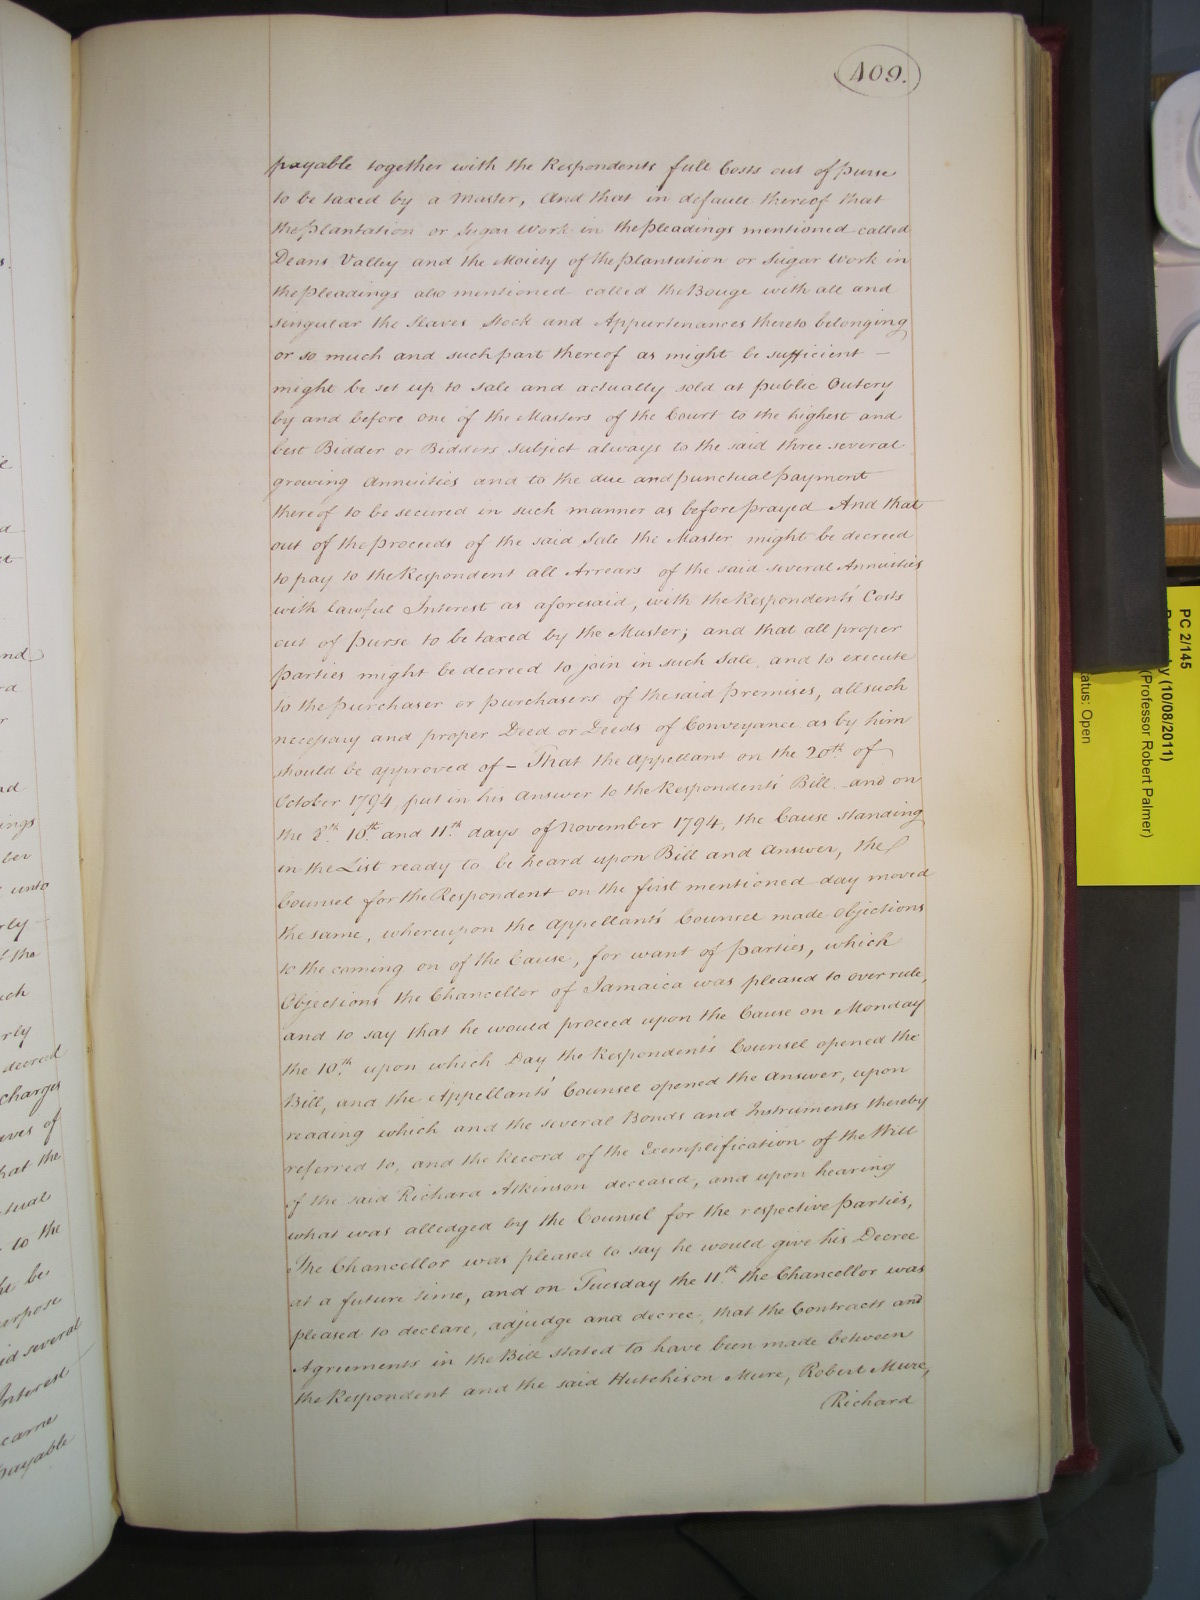 409.
payable together with the Respondents full Costs out of purse
to be taxed by a Master, And that in default thereof that
the Plantation or Sugar Work in the Pleadings mentioned called
Deans Valley and the Moiety of the Plantation or Sugar Work in
the Pleadings also mentioned called the Bouge with all and
singular the Slaves Stock and Appurtenances thereto belonging
or so much and such part thereof as might be sufficient –
might be set up to sale and actually sold at public Outcry
by and before one of the Masters of the Court to the highest and
best Bidder or Bidders subject always to the said three several
growing Annuities and to the due and punctual payment
thereof to be secured in such manner as before prayed And that
out of the proceeds of the said Sale the Master might be decreed
to pay to the Respondent all Arrears of the said several Annuities
with lawful Interest as aforesaid, with the Respondent's Costs
out of purse to be taxed by the Master; and that all proper
parties might be decreed to join in such Sale, and to execute
to the purchaser or purchasers of the said premises, all such
necessary and proper Deed or Deeds of Conveyance as by him
should be approved of – That the Appellant on the 20th of
October 1794, put in his Answer to the Respondent's Bill and on
the 8th 10th and 11th days of November 1794, the Cause standing
in the List ready to be heard upon Bill and Answer, the
Counsel for the Respondent on the first mentioned day moved
the same, whereupon the Appellant's Counsel made Objections
to the coming on of the Cause, for want of parties, which
Objections the Chancellor of Jamaica was pleased to over rule,
and to say that he would proceed upon the Cause on Monday
the 10th upon which Day the Respondent's Counsel opened the
Bill, and the Appellant's Counsel opened the Answer, upon
reading which and the several Bonds and Instruments thereby
referred to, and the Record of the Exemplification of the Will
of the said Richard Atkinson deceased, and upon hearing
what was alledged by the Counsel for the respective parties,
The Chancellor was pleased to say he would give his Decree
at a future time, and on Tuesday the 11th the Chancellor was
pleased to declare, adjudge and decree, that the Contracts and
Agreements in the Bill stated to have been made between
the Respondent and the said Hutchison Mure, Robert Mure,
Richard
PC 2/145
(10/08/2011)
(Professor Robert Palmer)
atus: Open